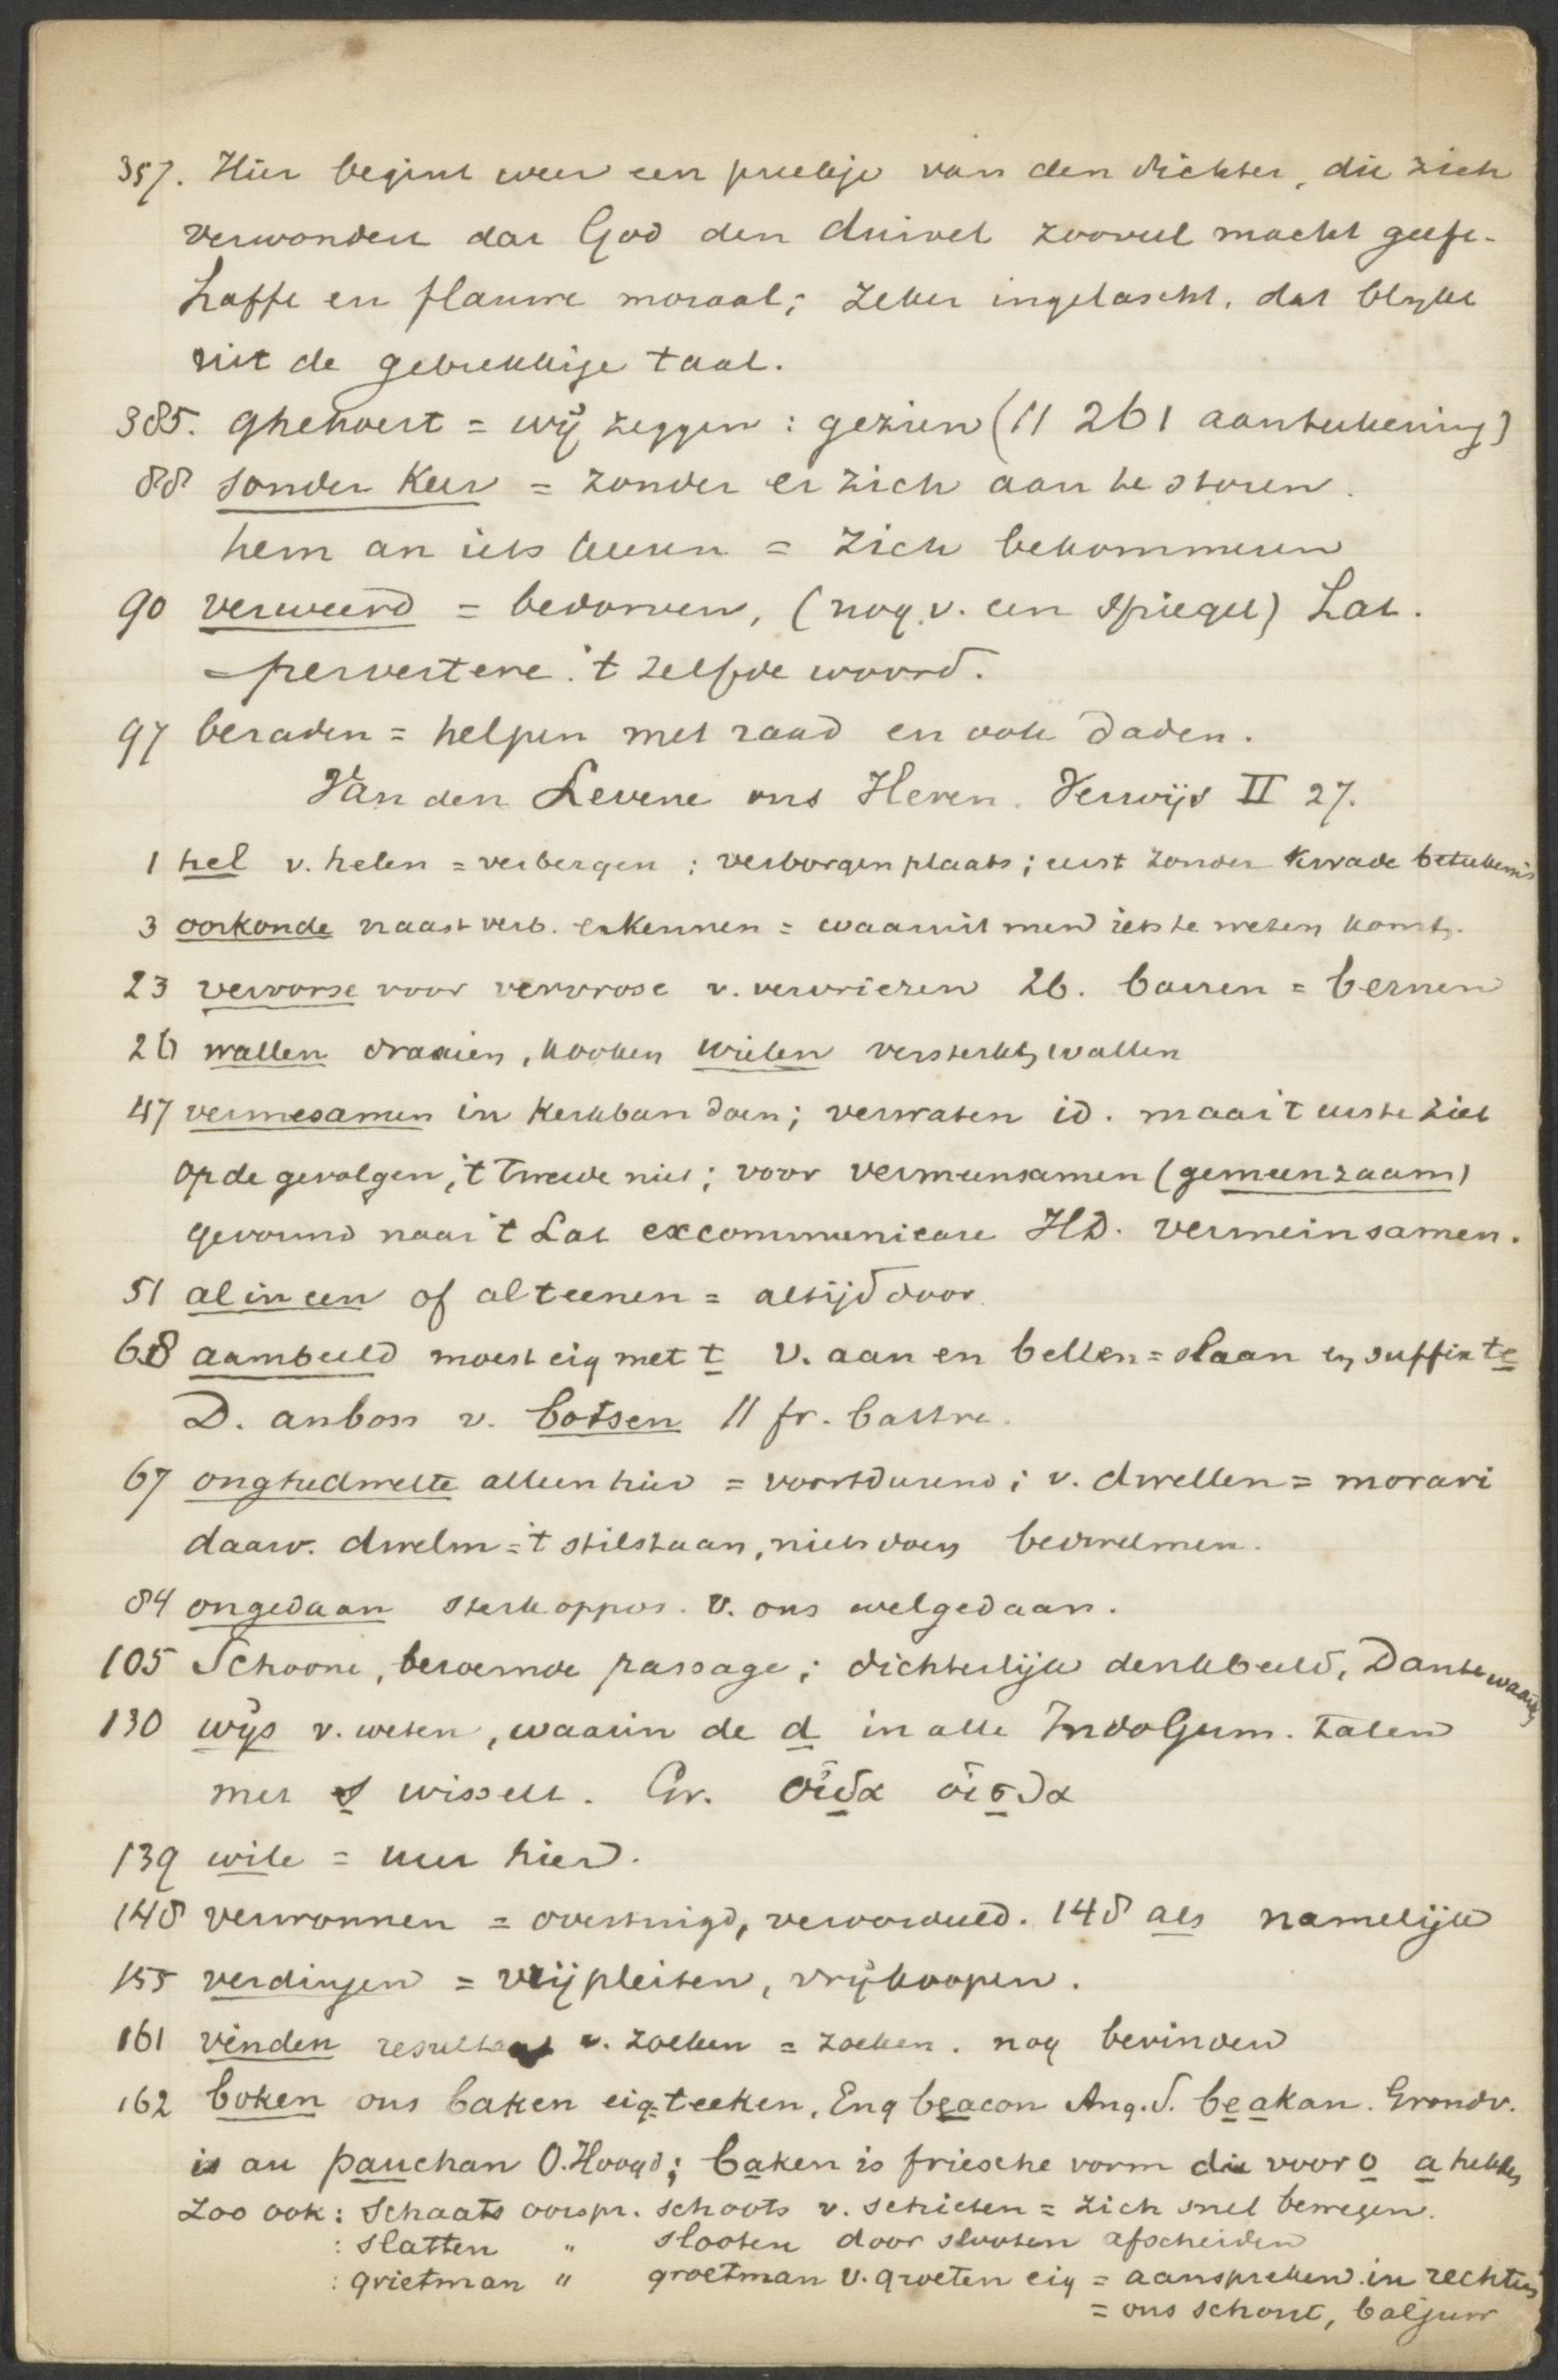 357. Hier begint weer een preekje van den dichter, die zich
verwondert dat God den duivel zooveel macht geeft.
Laffe en flauwe moraal; zeker ingelascht, dat blijkt
uit de gebrekkige taal.
385. ghehoert = wij zeggen : gezien (11 261 aanteekening)
88 sonder keer = zonder er zich aan te storen.
hem an iets keeren = zich bekommeren
90 verweerd = bedorven, (nog v. een spiegel) Lat.
pervertere. 't zelfde woord.
97 beraden = helpen met raad en ook daden.
Van den Levene ons Heren. Verwijs II 27.
1 hel v. helen = verbergen : verborgen plaats; eerst zonder kwade beteekenis
3 oorkonde naast verb. erkennen = waaruit men iets te weten komt.
23 vervorse voor vervrose v. vervriezen 26. barren = bernen
26 wallen draaien, kooken wielen versterkt, wallen
47 vermesamen in kerkban doen; verwaten id. maar 't eerste ziet
op de gevolgen, 't tweede niet; voor vermeensamen (gemeenzaam)
gevormd naar 't Lat excommunicare HD. vermeinsamen.
51 al in een of alteenen = altijd door
68 aambeeld moest eig met t v. aan en bellen = slaan en suffix te
D. anboss v. botsen 11 fr. battre.
67 onghedwelte alleen hier = voortdurend; v. dwellen = morari
daarv. dwelm = 't stilstaan, niets doen bedwelmen.
84 ongedaan sterk oppos. v. ons welgedaan.
105 Schoone, beroemde passage; dichterlijk denkbeeld, Dante waardig
130 wijs v. weten, waarin de d in alle IndoGerm. talen
met s wisselt. Gr. οἶδα οἶσθα
139 wile = uur hier.
148 verwonnen = overtuigd, veroordeeld. 148 als namelijk
155 verdingen = vrijpleiten, vrijkoopen.
161 vinden resultaat v. zoeken = zoeken. nog bevinden
162 boken ons baken eig. teeken, Eng beacon Ang.S. beakan. Grondv.
is au pauchan O.Hoogd; baken is friesche vorm die voor o a hebben
Zoo ook : Schaats oorspr. schoots v. schieten = zich snel bewegen.
: slatten " slooten door slooten afscheiden
: grietman " groetman v. groeten eig = aanspreken in rechten
= ons schout, baljuw